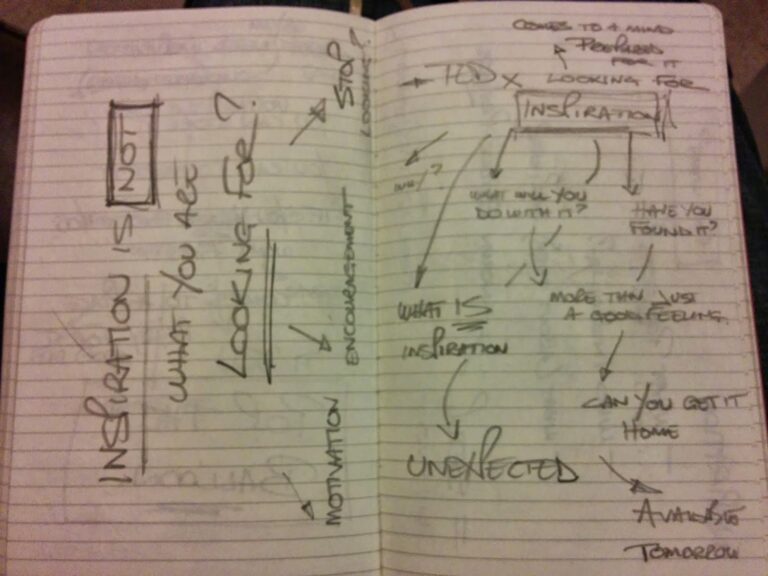 INSPIRATION IS NOT
WHAT YOU ARE
LOOKING FOR?
STOP
LOOKING?
ENCOURAGEMENT
MOTIVATION
COMES TO A MIND
PREPARED
FOR IT
LOOKING FOR
INSPIRATION
WHY?
WHAT WILL YOU
DO WITH IT?
HAVE YOU
FOUND IT?
WHAT IS
INSPIRATION
MORE THAN JUST
A GOOD FEELING.
CAN YOU GET IT
HOME
UNEXPECTED
AVAILABLE
TOMORROW